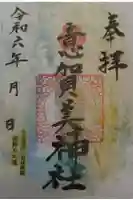 奉拝
意賀美神社
令和六年 月 日